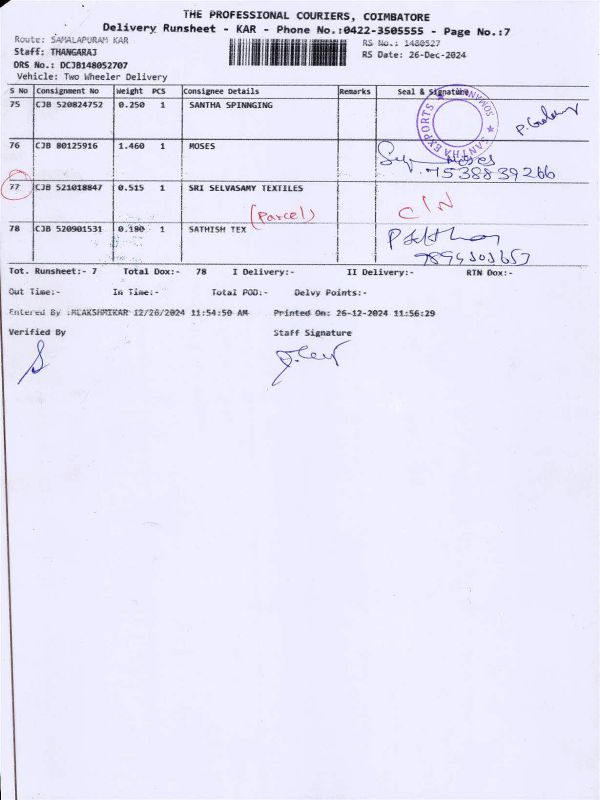 THE PROFESSIONAL COURIERS, COIMBATORE
Delivery Runsheet - KAR - Phone No.:0422-3505555 - Page No.:7
Route: SAMALAPURAM KAR RS No.: 1480527
Staff: THANGARAJ RS Date: 26-Dec-2024
DRS No.: DCJB148052707
Vehicle: Two Wheeler Delivery
S No Consignment No Weight PCS Consignee Details Remarks Seal & Signature
75 CJB 520824752 0.250 1 SANTHA SPINNGING
SANTHA EXPORTS
76 CJB 80125916 1.460 1 MOSES
Moses
7538839266
77 CJB 521018847 0.515 1 SRI SELVASAMY TEXTILES
(Parcel) C/N
78 CJB 520901531 0.180 1 SATHISH TEX
Tot. Runsheet:- 7 Total Dox:- 78 I Delivery:- II Delivery:- RTN Dox:-
Out Time:- In Time:- Total POD:- Delvy Points:-
Entered By :MLAKSHMIKAR 12/26/2024 11:54:50 AM Printed On: 26-12-2024 11:56:29
Verified By Staff Signature